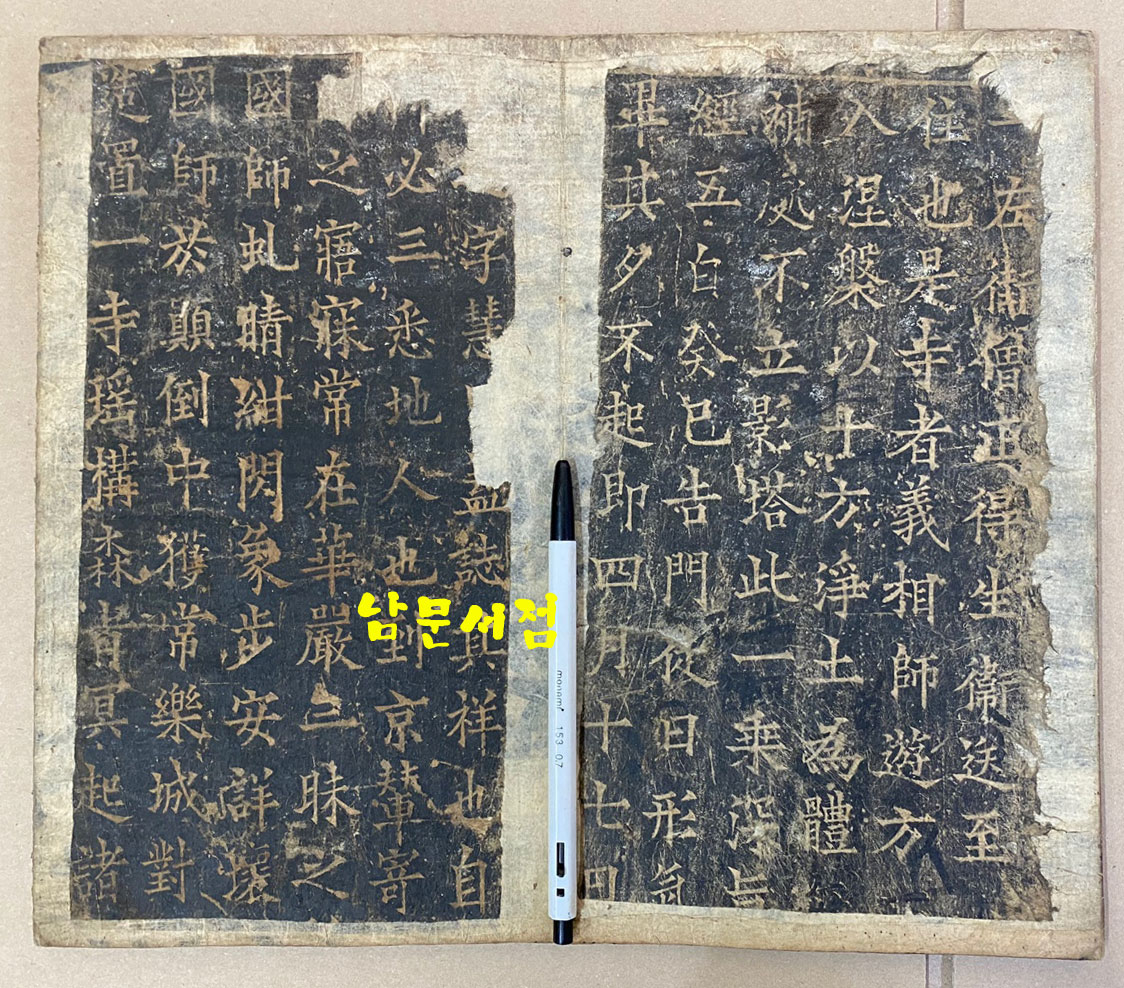 左街僧正得生衛送至
住也是寺者義相師遊方
入涅槃以十方淨土為體
補處不立影塔此一乗深旨
經五白癸巳告門夜日形氣
畢其夕不起即四月十七日
字慧誌其祥也自
必三悉地人也到京輦寄
之寤寐常在華嚴三昧之
國師虬晴紺閃象步安詳壞
國師於顛倒中獲常樂城對
置一寺瑶構森冥起諸
남문서점
monami 153 0.7